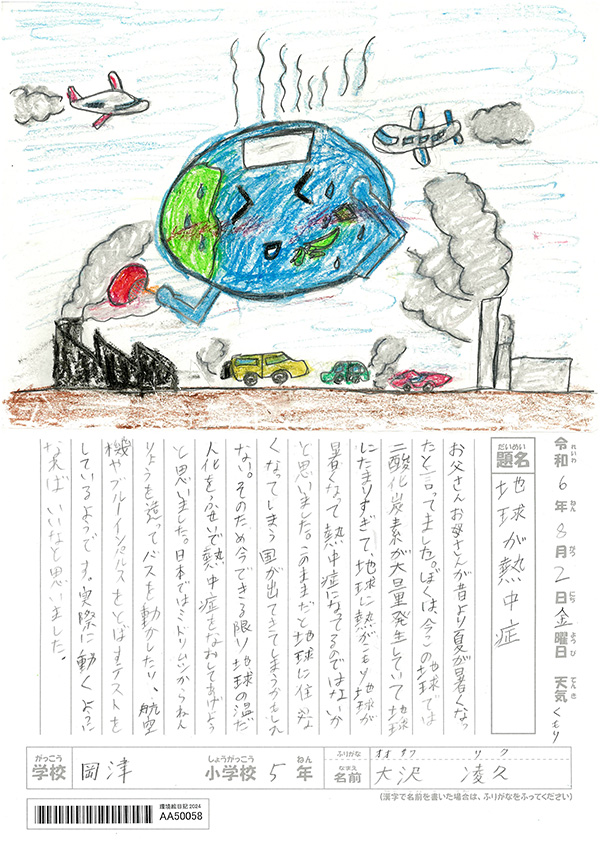 令和6年8月2日金曜日 天気くもり
れいわ ねん がつ にち ようび てんき
だいめい
題名 地球が熱中症
お父さんお母さんが昔より夏が暑くなっ
たと言ってました。ぼくは、今この地球では
二酸化炭素が大量発生していて地球
にたまりすぎて、地球に熱がこもり地球が
暑くなって熱中症になってるのではないか
と思いました。このままだと地球に住めな
くなってしまう国が出てきてしまうかもしれ
ない。そのため今できる限り地球の温だ
ん化をふせいで熱中症をなおしてあげよう
と思いました。日本ではミドリムシからねん
りょうを造ってバスを動かしたり、航空
機やブルーインパルスをとばすテストを
しているようです。実際に動くように
なればいいなと思いました。
がっこう しょうがっこう ねん ふりがな オオサワ リク
学校 岡津 小学校 5年 なまえ 名前 大沢 凌久
(漢字で名前を書いた場合は、ふりがなをふってください)
環境絵日記2024
AA50058